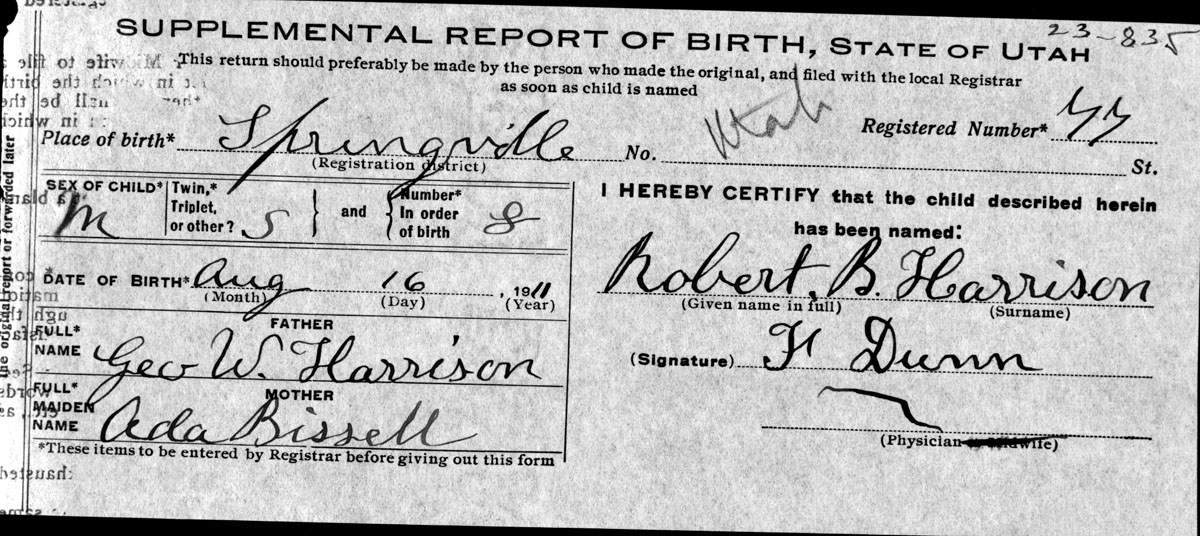 SUPPLEMENTAL REPORT OF BIRTH, STATE OF UTAH
23-835
This return should preferably be made by the person who made the original, and filed with the local Registrar
as soon as child is named
Utah
Registered Number* 77
Place of birth* Springville No. St.
(Registration district)
SEX OF CHILD* M
Twin,*
Triplet,
or other? S
and
Number*
In order
of birth 8
DATE OF BIRTH* Aug 16, 1911
(Month) (Day) (Year)
FATHER
FULL*
NAME Geo W. Harrison
MOTHER
FULL*
MAIDEN
NAME Ada Bissell
*These items to be entered by Registrar before giving out this form
I HEREBY CERTIFY that the child described herein
has been named:
Robert. B. Harrison
(Given name in full) (Surname)
(Signature) F Dunn
(Physician or Midwife)
the original report or forwarded later